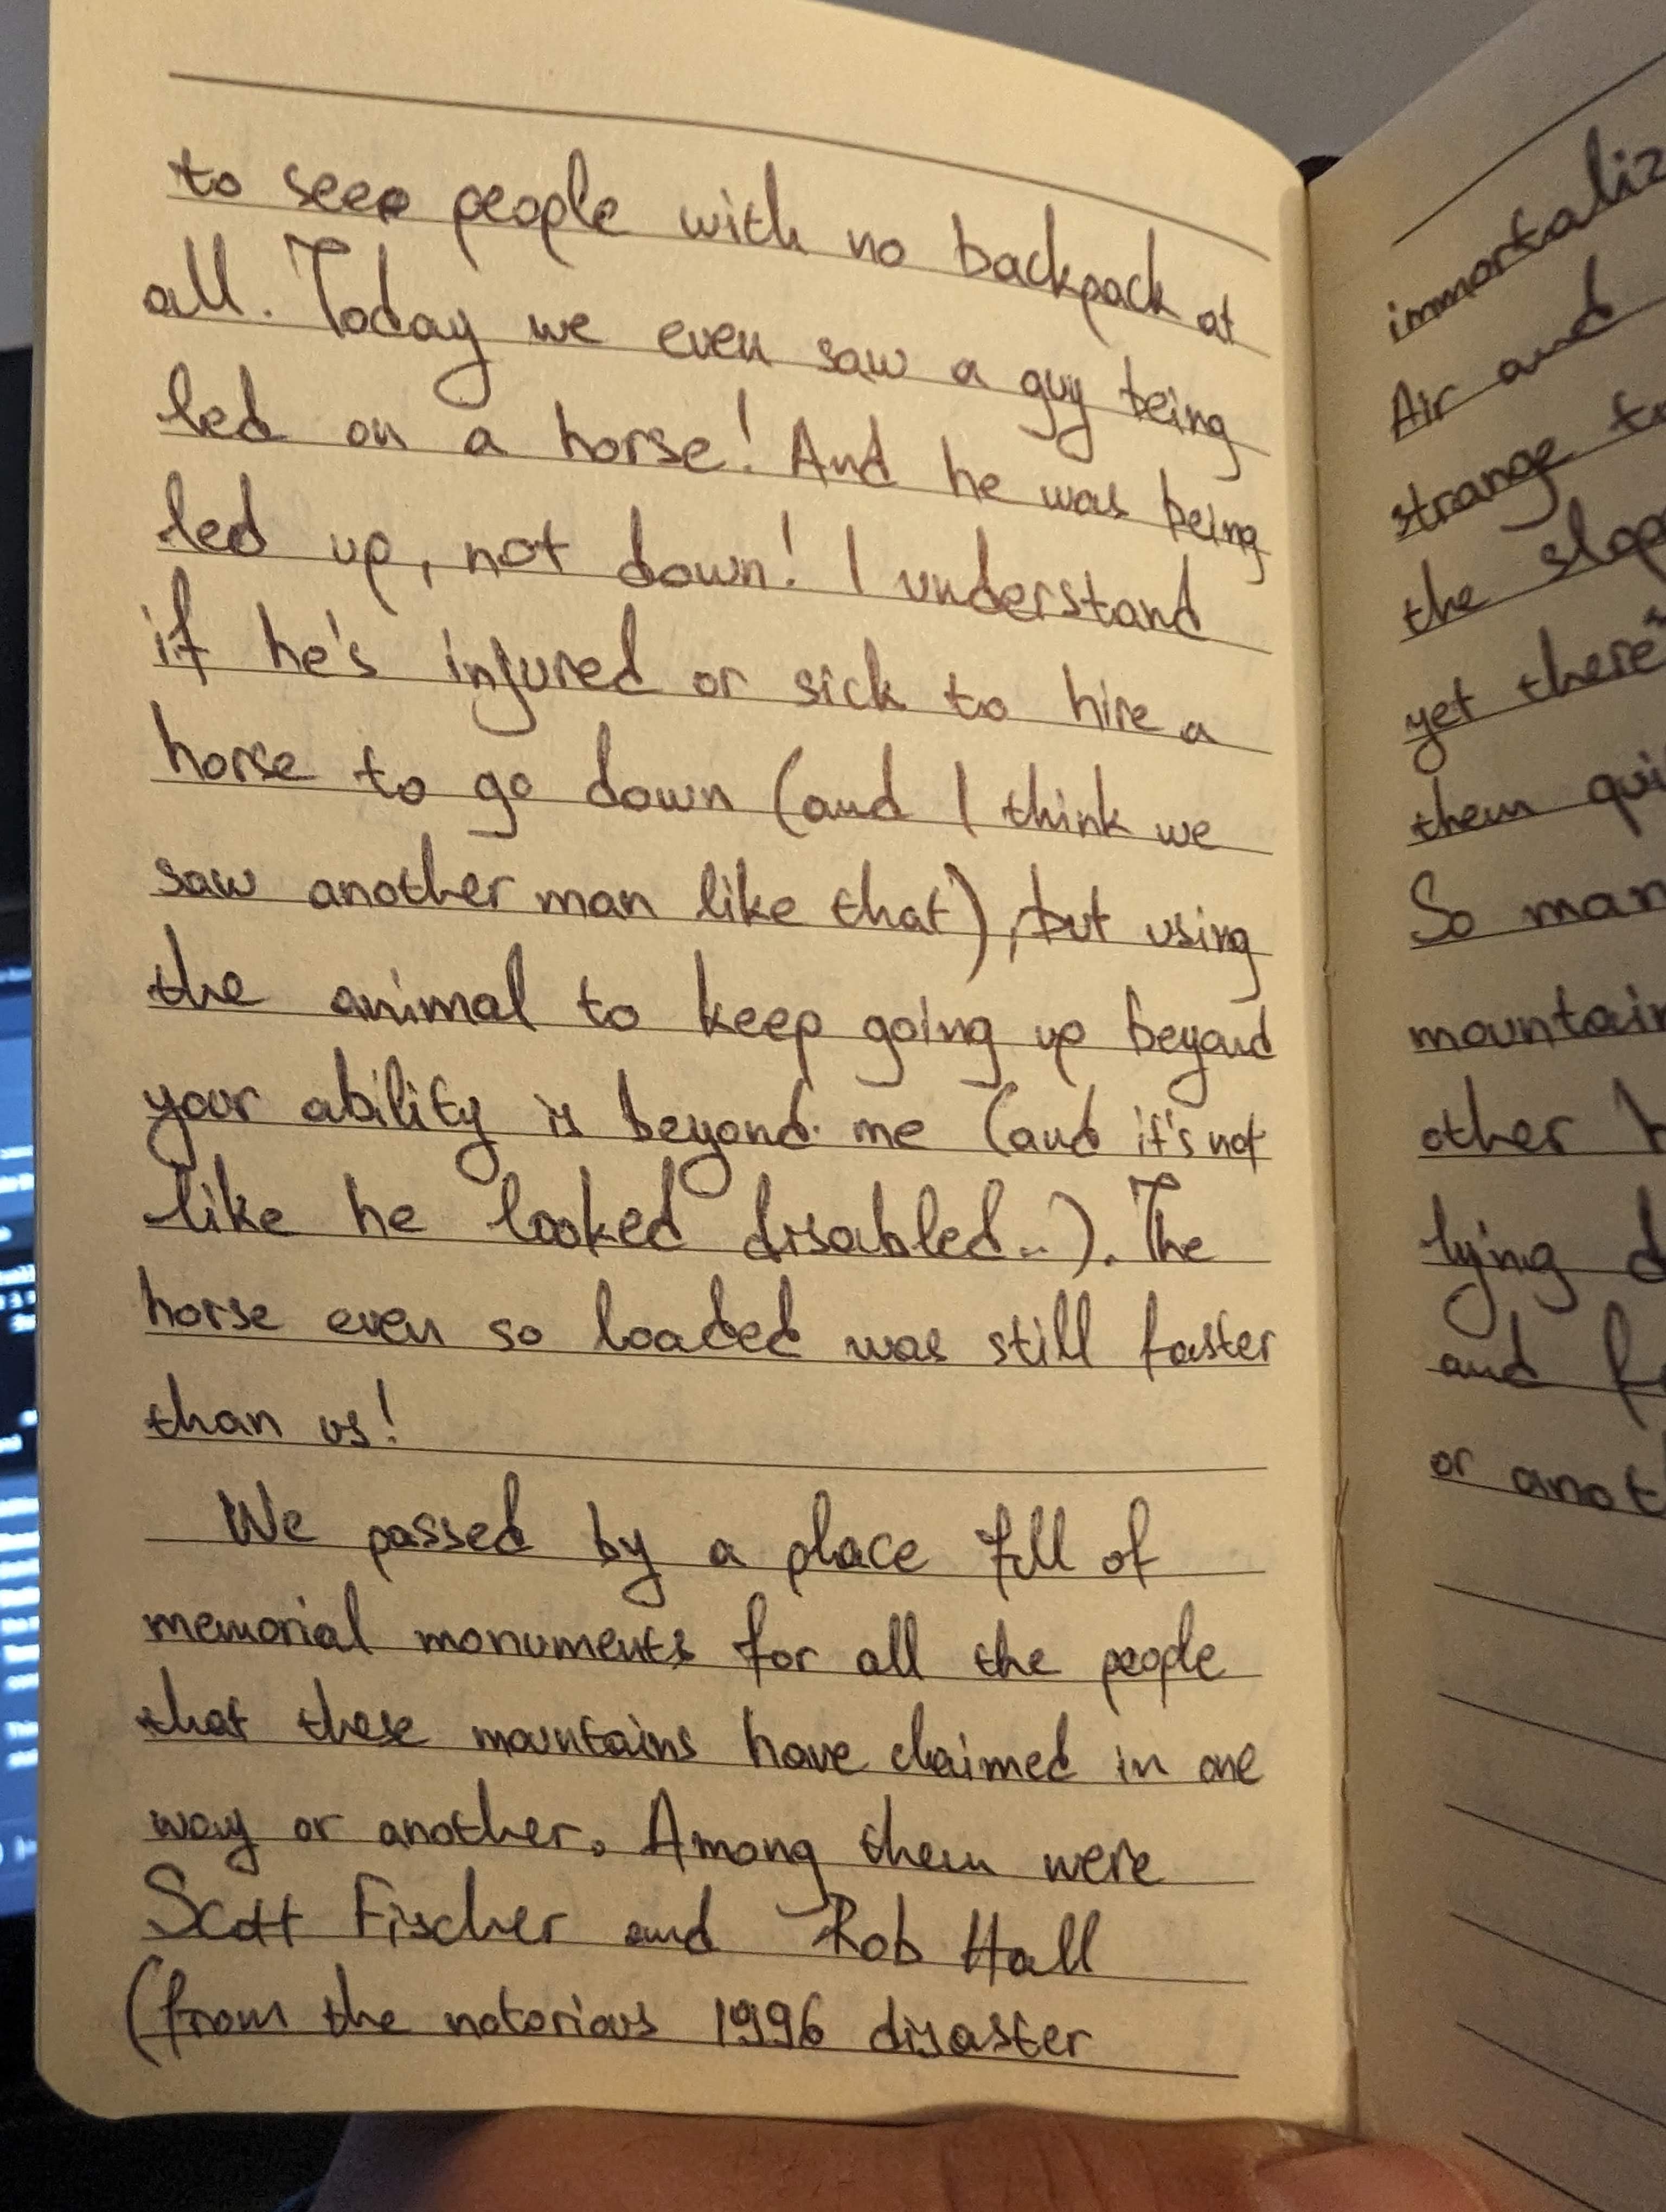 to see people with no backpack at
all. Today we even saw a guy being
led on a horse! And he was being
led up, not down! I understand
if he's injured or sick to hire a
horse to go down (and I think we
saw another man like that), but using
the animal to keep going up beyond
your ability is beyond me (and it's not
like he looked disabled...). The
horse even so loaded was still faster
than us!
We passed by a place full of
memorial monuments for all the people
that these mountains have claimed in one
way or another. Among them were
Scott Fischer and Rob Hall
(from the notorious 1996 disaster
immortaliz
Air and
strange to
the slop
yet there
them qui
So man
mountain
other
lying d
and
or anot